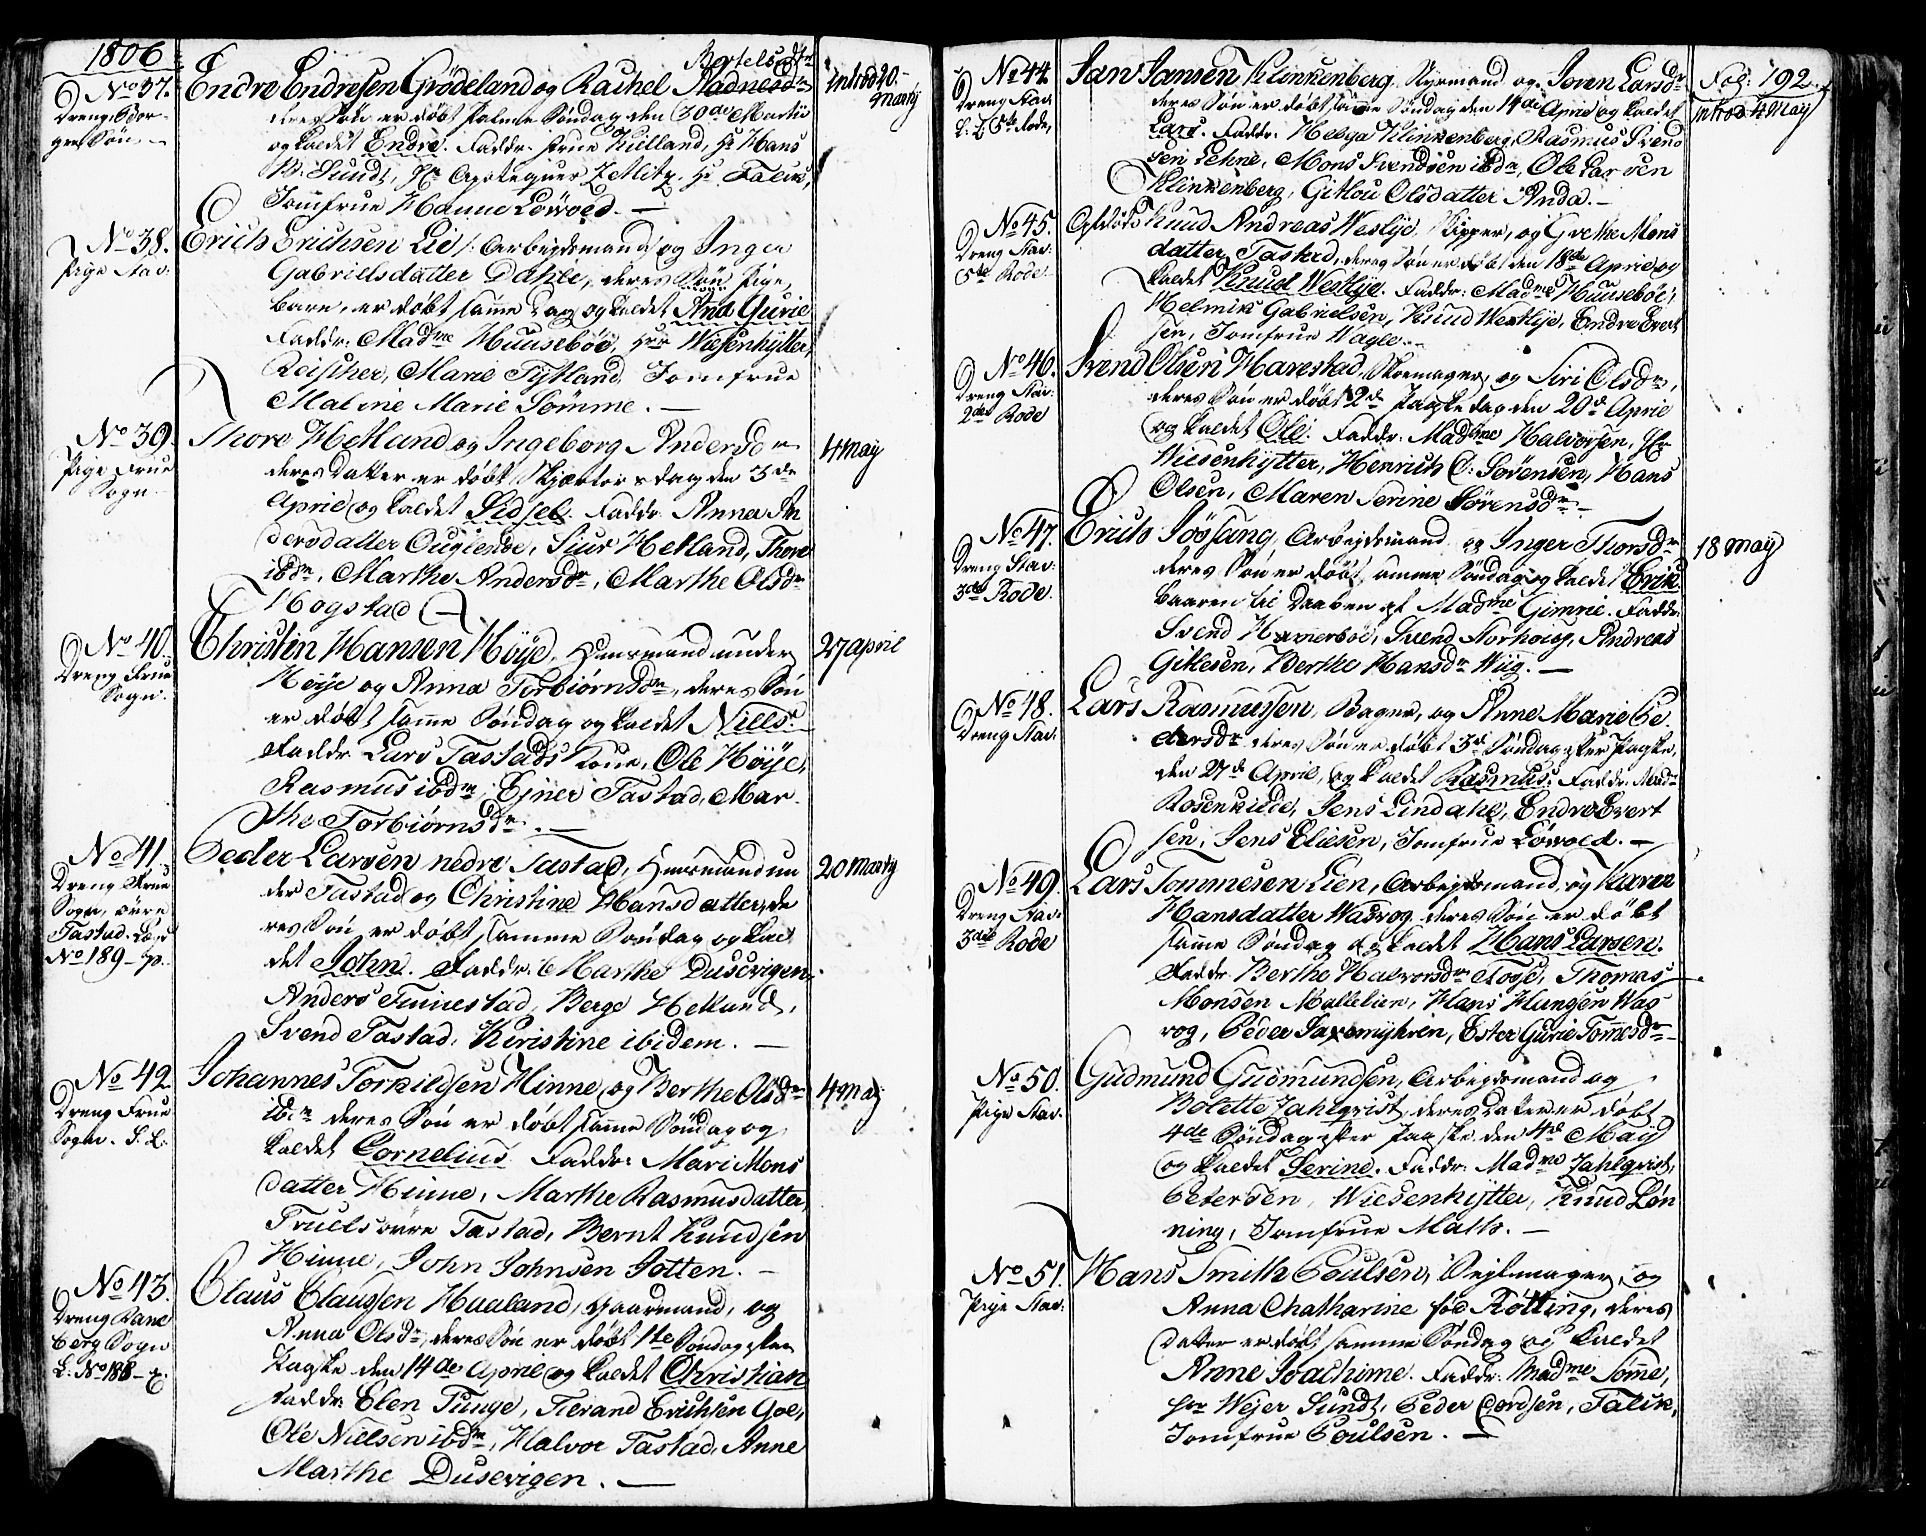 1806
No 37.
Dreng. Bor-
gersøn. –
Bertelsdtr
Endre Endresen Grödeland og Rachel Aadnesdr
deres Søn er döbt Palme Söndag den 30de Martii
og kaldet Endre. Faddr. Frue Kielland, Hr Hans
B. Sundt, Hr Apotequer Zetlitz, Hr Falck,
Jomfrue Hanne Löwold. —
introd 20.
marty
No 38.
Pige Stav:
Erich Erichsen Lie /: Arbejdsmand og Inger
Gabrielsdatter Dahle, deres Pige,
barn, er döbt samme Dag og kaldet Ana Gurie
Faddr: Madme Huuseböe, Hrr Wiesenhytter,
Reischer, Maren Tytland Jomfrue
Maline Marie Sömme. —
No 39.
Pige Frue
Sogn.
Thore Hetland og Ingeborg Andersdr
deres Datter er döbt Skjærtorsdag den 3de
April og kaldet Sidsel. Faddr. Anna An
dersdatter Ouglende, Siur Hetland, Thore
ibdm, Marthe Andersdr, Marthe Olsdr
Hogstad
4 may
No 40.
Dreng Frue
Sogn.
Christen Hansen Höye, Huusmand under
Höye og Anna Torbiörnsdr, deres Sön
er döbt samme Söndag og kaldet Niels.
Faddr. Lars Tastads Kone, Ole Höÿe,
Rasmus ibdm, Ejner Tastad, Mar-
the Torbiörnsdr. —
27 april
No 41.
Dreng Frue
Sogn, övre
Tastad. Lægd
No 189-
Peder Larsen nedre Tastad, Huusmand un
der Tastad og Christine Hansdatter, de
res Sön er döbt samme Söndag og kal
det John. Faddr. Marthe Dusevigen
Anders Finnestad, Berge Hetland,
Svend Tastad, Kiristine ibidem. —
20 marty
No 42
Dreng Frue
Sogn. S. L.
Johannes Torkildsen Hinne og Berthe Olsdr
ibm deres Sön er döbt samme Söndag og
kaldet Cornelius. Faddr: Mari Mons
datter Hinne, Marthe Rasmusdatter,
Truels övre Tastad, Bernt Knudsen
Hinne, John Johnsen Jotten. —
4 may
No 43.
Dreng Rane
berg Sogn
L: No 188-
Claus Claussen Hualand, Gaardmand, og
Anna Olsdr, deres Sön er döbt 1te Söndag efter
Paaske den 14de April og kaldet Christian
Faddr: Elen Tunge, Tierand Erichsen Goe,
Ole Nielsen ibdm, Halvor Tastad, Anne
Marthe Dusevigen. —
No 44.
Dreng Stav:
5te Rode,
Jan Jansen Klinkenberg. Styrmand og Joren Larsdr
deres Sön er döbt samme Söndag den 14de April og kaldet
Lars. Faddr: Helga Klinkenberg, Rasmus Svend
sen Lehne, Mons Svendsen ibdm, Ole Larsen
Klinkenberg, Gitlou Olsdatter Anda. –
Fol: 192.
introd 4 May
No 45.
Dreng Stav:
5te Rode
Knud Andreas Westlye Skipper, og Grethe Mons
datter Tastad, deres Sön er döbt den 18de April og
kaldet Knud Westlye. Faddr: Madme Huuseböe,
Helmik Gabrielsen, Knud Westlye, Endre Evert
sen, Jomfrue Wagle. –
No 46.
Dreng Stav:
2den Rode
Svend Olsen Harestad, Skomager og Siri Olsdr,
deres Sön er döbt 2d Paaske dag den 20d April
og kaldet Ole. Faddr: Madme Halvorsen, Hr
Wiesenhytter, Henrich C: Sörensen, Hans
Olsen, Maren Serine Sörensdr. –
No 47.
Dreng Stav:
3die Rode.
Erich Jössang, Arbejdsmand og Inger Thorsdr
deres Sön er döbt samme Söndag og kaldet Erik
baaren til Daaben af Madme Gimrie. Faddr:
Svend Hammerböe, Svend Storhoug, Andreas
Gitlesen, Berthe Hansdr Wiig. —
18 may
No 48.
Dreng Stav:
Lars Rasmussen, Bager, og Anne Marie Pe
dersdr deres Sön er döbt 3d Söndag efter Paaske,
den 27de April, og kaldet Rasmus. Faddr: Madme
Rosenkilde, Jens Lindahl, Endre Evert
sen, Jens Eliesen, Jomfrue Löwold. —
No 49.
Dreng Stav:
3die Rode
Lars Tommesen Lien, Arbejdsmand, og Karen
Hansdatter Wasvog deres Sön er döbt
samme Söndag og kaldet Hans Larsen.
Faddr. Berthe Halvorsdr Kloge, Thomas
Monsen Møllelien, Hans Hansen Was
vog, Peder Saxemyhren, Ester Gurie Tommesdr –
No 50.
Pige Stav:
Gudmund Gudmundsen, Arbejdsmand og
Bolette Jahlqvist, deres Datter er döbt
4de Söndag efter Paaske den 4de Maÿ
og kaldet Serine. Faddr: Madme Jahlqvist,
Petersen, Wiesenhytter, Knud Lön
ning, Jomfrue Malts. —
No 51.
Pige Stav:
Hans Smith Poulsen, Sejlmager, og
Anna Chatharine föd Rötting, deres
Datter er döbt samme Söndag og kaldet
Anne Joachime. Faddr: Madme Sömme,
Hrr Wejer Sundt, Peder Cordsen, Falck,
Jomfrue Poulsen. —